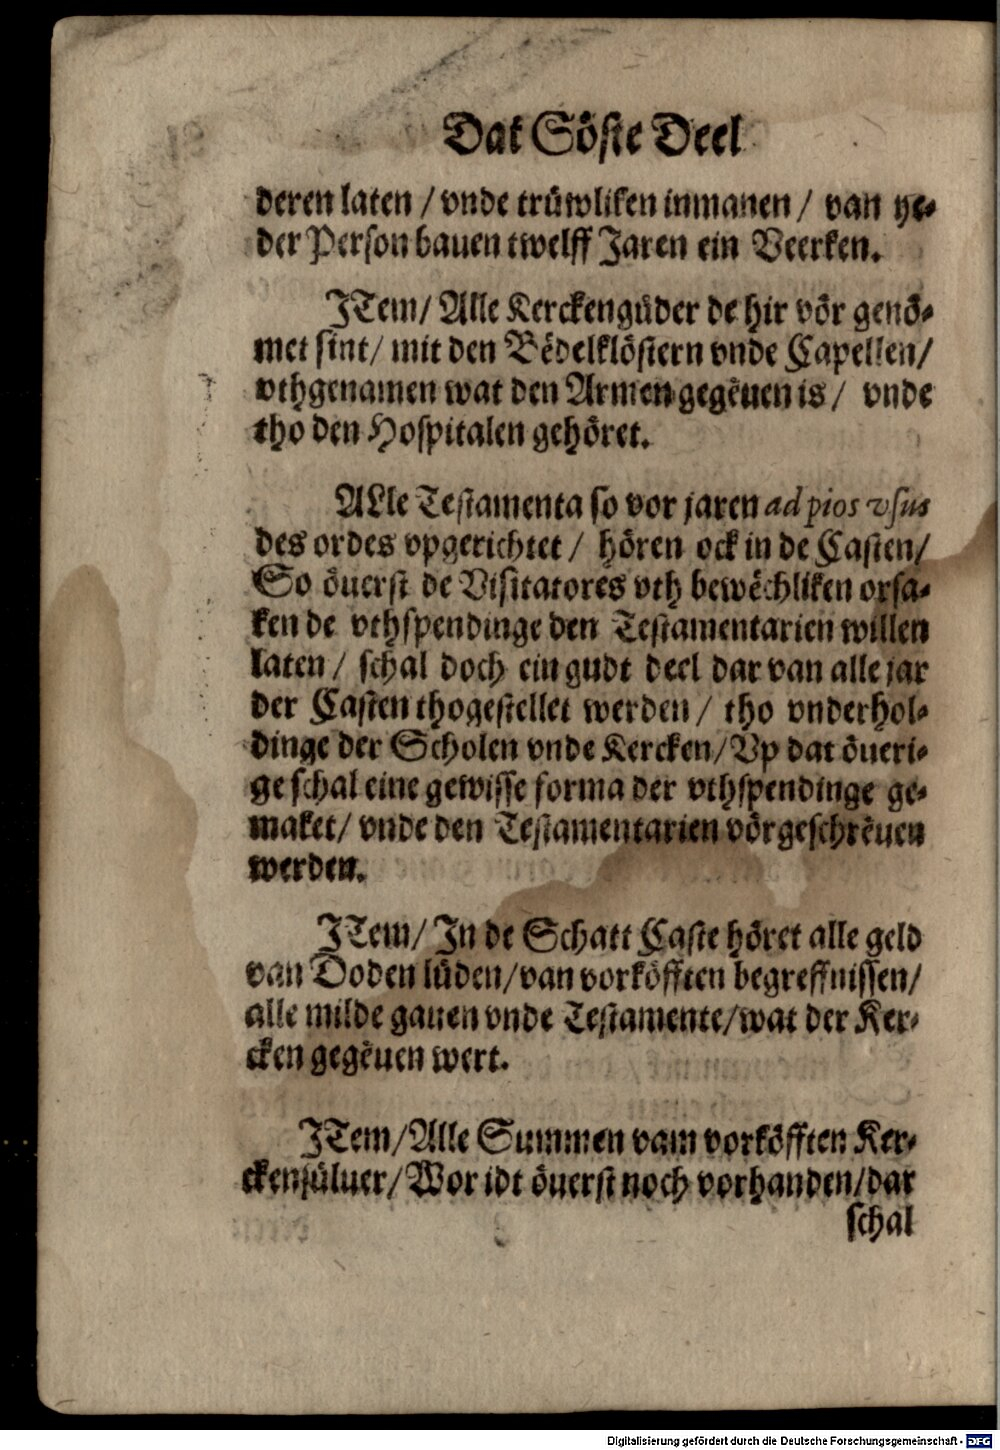 Dat Söste Deel
deren laten / vnde trüwliken inmanen / van ye-
der Person bauen twelff Jaren ein Veerken.
JTem / Alle Kerckengüder de hir vör genö-
met sint / mit den Bëdelklöstern vnde Capellen /
vthgenamen wat den Armen gegëuen is / vnde
tho den Hospitalen gehöret.
ALle Testamenta so vor jaren ad pios vsus
des ordes vpgerichtet / hören ock in de Casten /
So öuerst de Visitatores vth bewëchliken orsa-
ken de vthspendinge den Testamentarien willen
laten / schal doch ein gudt deel dar van alle jar
der Casten thogestellet werden / tho vnderhol-
dinge der Scholen vnde Kercken / Vp dat öueri-
ge schal eine gewisse forma der vthspendinge ge-
maket / vnde den Testamentarien vörgeschrëuen
werden.
JTem / Jn de Schatt Caste höret alle geld
van Doden lüden / van vorköfften begreffnissen /
alle milde gauen vnde Testamente / wat der Ker-
cken gegëuen wert.
JTem / Alle Summen vam vorköfften Ker-
ckensüluer / Wor idt öuerst noch vorhanden / dar
schal
Digitalisierung gefördert durch die Deutsche Forschungsgemeinschaft - DFG